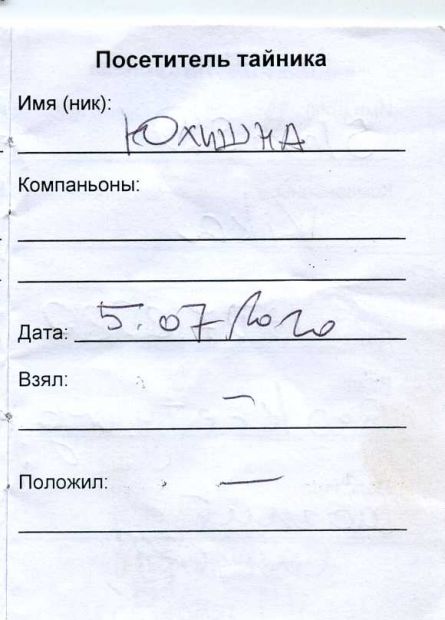 Посетитель тайника
Имя (ник):
Юхишна
Компаньоны:
Дата: 5.07/2020
Взял: –
Положил: –